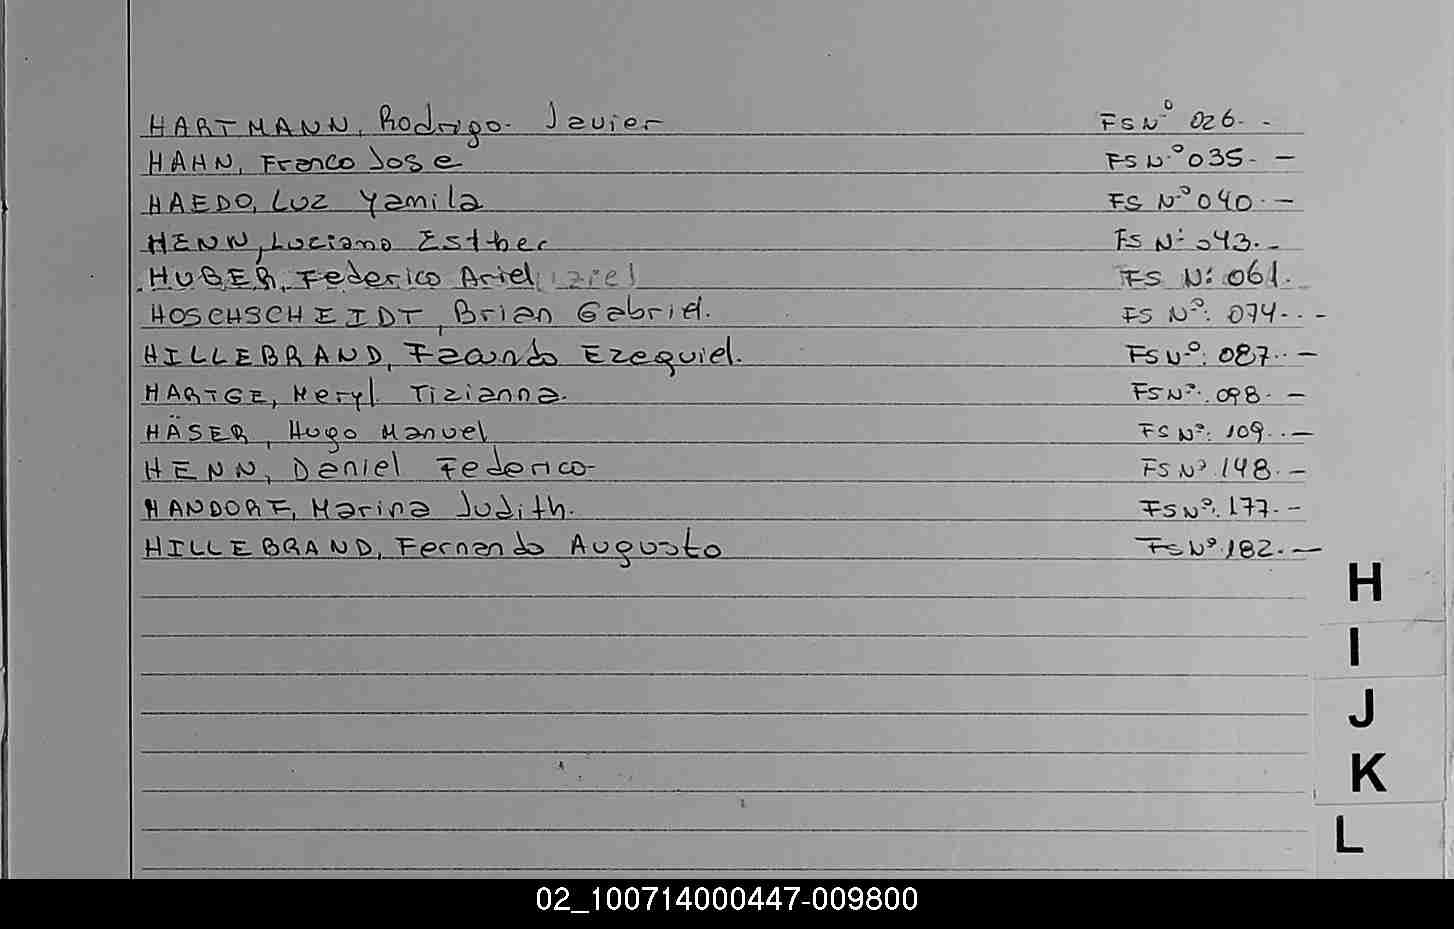 HARTMANN, Rodrigo Javier FS Nº 026.-
HAHN, Franco Jose FS Nº 035.-
HAEDO, Luz Yamila FS Nº 040.-
HENN, Luciano Esther FS Nº 043.-
HUBER, Federico Ariel FS Nº: 061.-
HOSCHSCHEIDT, Brian Gabriel. FS Nº: 074.-
HILLEBRAND, Ezequiel. FS Nº: 087.-
HARTGE, Meryl Tizianna. FS Nº: 098.-
HÄSER, Hugo Manuel FS Nº: 109.-
HENN, Daniel Federico- FS Nº 148.-
HANDORF, Marina Judith. FS Nº: 177.-
HILLEBRAND, Fernando Augusto FS Nº 182.-
H
I
J
K
L
02_100714000447-009800